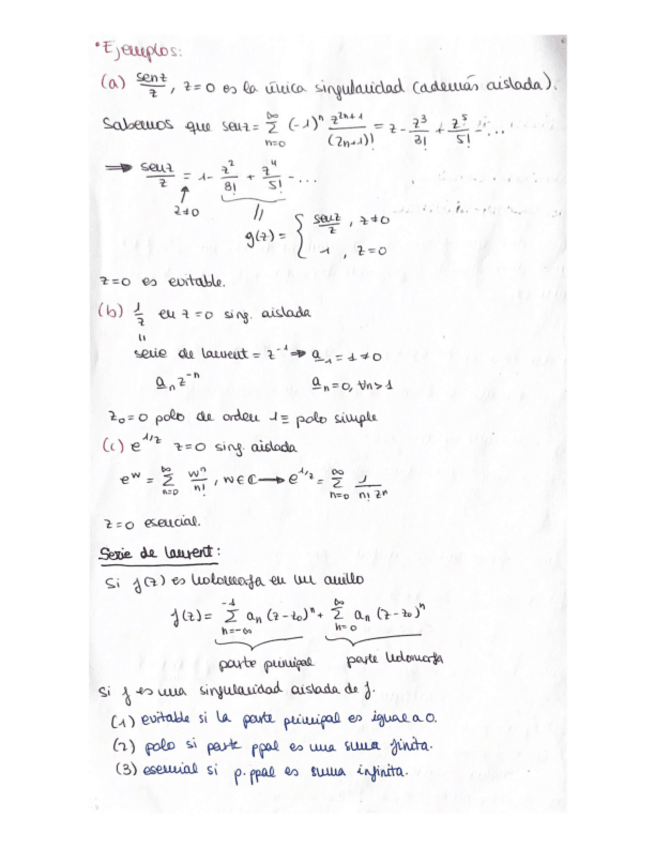 • Ejemplos:
(a) senz/z, z=0 es la única singularidad (además aislada).
Sabemos que senz = ∞ Σ n=0 (-1)ⁿ z²ⁿ⁺¹/(2n+1)! = z - z³/3! + z⁵/5! - ...
⟹ senz/z = 1 - z²/3! + z⁴/5! - ...
↑ z≠0
||
g(z) = { senz/z , z≠0
1 , z=0
z=0 es evitable.
(b) 1/z en z=0 sing. aislada
||
serie de laurent = z⁻¹ ⟹ a₋₁ = 1 ≠ 0
a₋ₙ z⁻ⁿ a₋ₙ = 0, ∀n>1
z₀=0 polo de orden 1 ≡ polo simple
(c) e^1/z z=0 sing. aislada
e^w = ∞ Σ n=0 wⁿ/n! , w∈ℂ ⟶ e^1/z = ∞ Σ n=0 1/(n! zⁿ)
z=0 esencial.
Serie de laurent:
Si f(z) es holomorfa en un anillo
f(z) = -1 Σ n=-∞ aₙ (z-z₀)ⁿ + ∞ Σ n=0 aₙ (z-z₀)ⁿ
parte principal parte holomorfa
Si f es una singularidad aislada de f.
(1) evitable si la parte principal es igual a 0.
(2) polo si parte ppal es una suma finita.
(3) esencial si p.ppal es suma infinita.